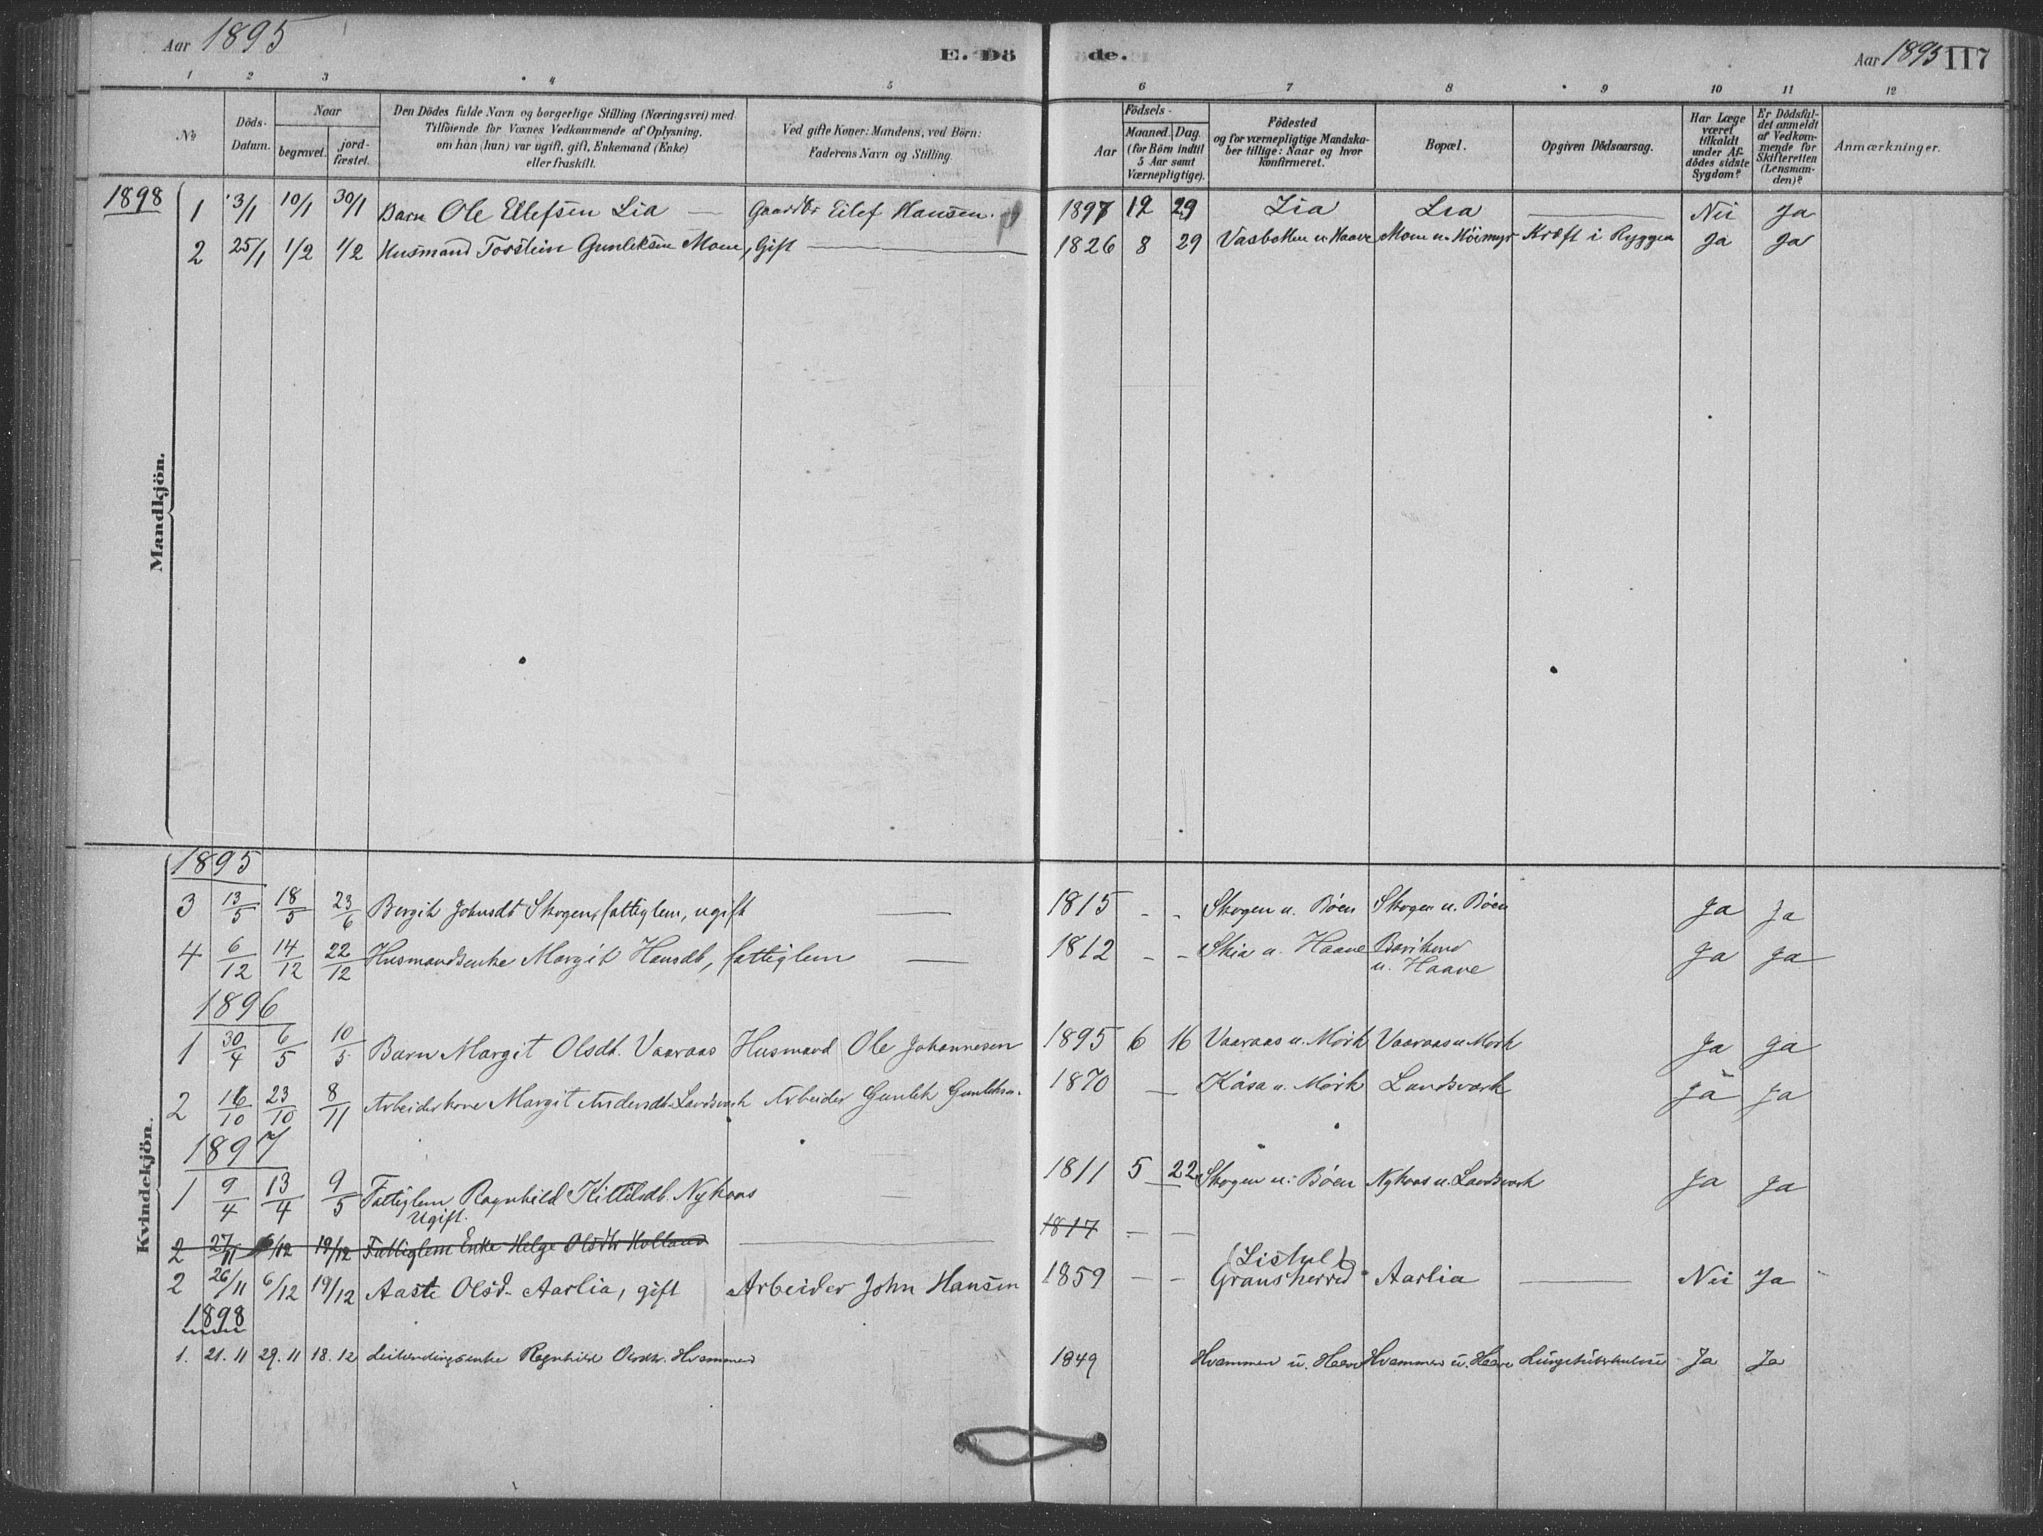 Aar 1895
E. Döde.
Aar 1895 117
1 2 3 4 5 6 7 8 9 10 11 12
No
Döds-Datum.
Naar
begravet.
jordfæstet.
Den Dödes fulde Navn og borgerlige Stilling (Næringsvei) med
Tilföiende for Voxnes Vedkommende af Oplysning,
om han (hun) var ugift, gift, Enkemand (Enke)
eller fraskilt.
Ved gifte Koner: Mandens, ved Börn:
Faderens Navn og Stilling.
Födsels-
Aar
Maaned. Dag.
(for Börn indtil
5 Aar samt
Værnepligtige).
Födested
og for værnepligtige Mandskaber tillige: Naar og hvor
konfirmeret.
Bopæl.
Opgiven Dödsaarsag.
Har Læge
været
tilkaldt
under Afdödes sidste
Sygdom?
Er Dödsfaldet anmeldt
af Vedkommende for
Skifteretten
(Lensmanden)?
Anmærkninger.
Mandkjön.
1898
1 3/1 10/1 30/1 Barn Ole Ellefsen Lia — Gaardbr Eilef Hansen. 1897 12 29 Lia Lia — Nei Ja
2 25/1 1/2 1/2 Husmand Torstein Gunleksen Moen, Gift — 1826 8 29 Vasbotten u. Haave Moen u. Höimyr Kræft i Ryggen Ja Ja
Kvindekjön.
1895
3 13/5 18/5 23/6 Bergit Johnsdt Skogen, fattiglem, ugift — 1815 - - Skogen u. Böen Skogen u. Böen Ja Ja
4 6/12 14/12 22/12 Husmandsenke Margit Hansdt, fattiglem — 1812 - - Skia u. Haave u. Haave Ja Ja
1896
1 30/4 6/5 10/5 Barn Margit Olsdt. Vaaraas Husmand Ole Johannesen 1895 6 16 Vaaraas u. Mörk Vaaraas u. Mörk Ja Ja
2 16/10 23/10 8/11 Arbeiderkone Margit Andersdt. Landsverk Arbeider Gunlek Gunleksn. 1870 — Kåsa u. Mörk Landsverk Ja Ja
1897
1 9/4 13/4 9/5 Fattiglem Ragnhild Kittilsdt. Nykaas — 1811 5 22 Skogen u. Böen Nykaas u. Landsverk Ja Ja
Ugift.
2 27/11 6/12 19/12 Fattiglem Enke Helge Olsdtr Kolland — 1817 - -
2 26/11 6/12 19/12 Aaste Olsd. Aarlia, gift Arbeider John Hansen 1859 — — (Listhul) Gransherred Aarlia — Nei Ja
1898
1. 21.11 29.11 18.12 Leilendingsenke Ragnhild Olsdtr. Hvammen 1849 Hvammen u. Haave Hvammen u. Haave Lungetuberkulose Ja Ja